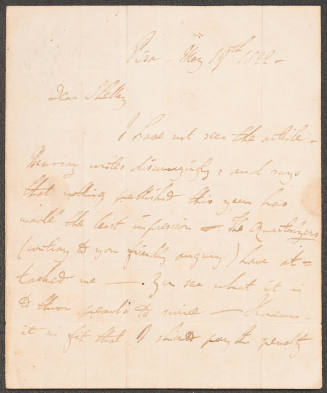 Pisa - May 19th 1822 -
Dear Shelley
I have not seen the article -
Murray writes discouragingly & and says
that nothing published this year has
made the least impression - The Quarterlyers
(contrary to your friendly augury) have at=
tacked me - You see what it is
to throw pearls to swine - However
it is fit that I should pay the penalty